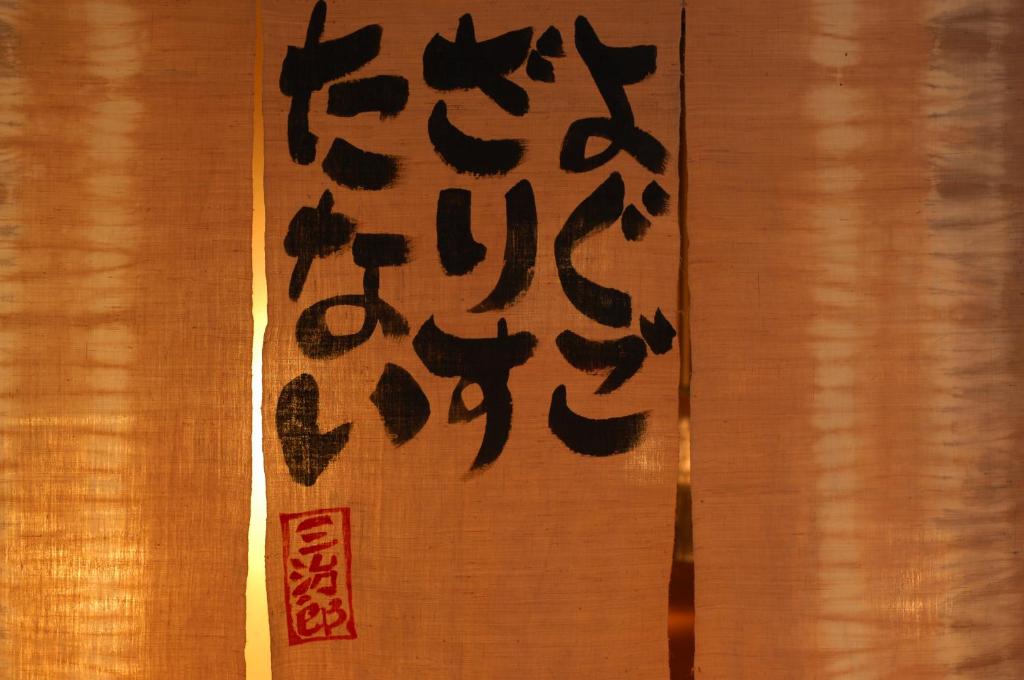 よぐご
ざりす
たない
三治郎